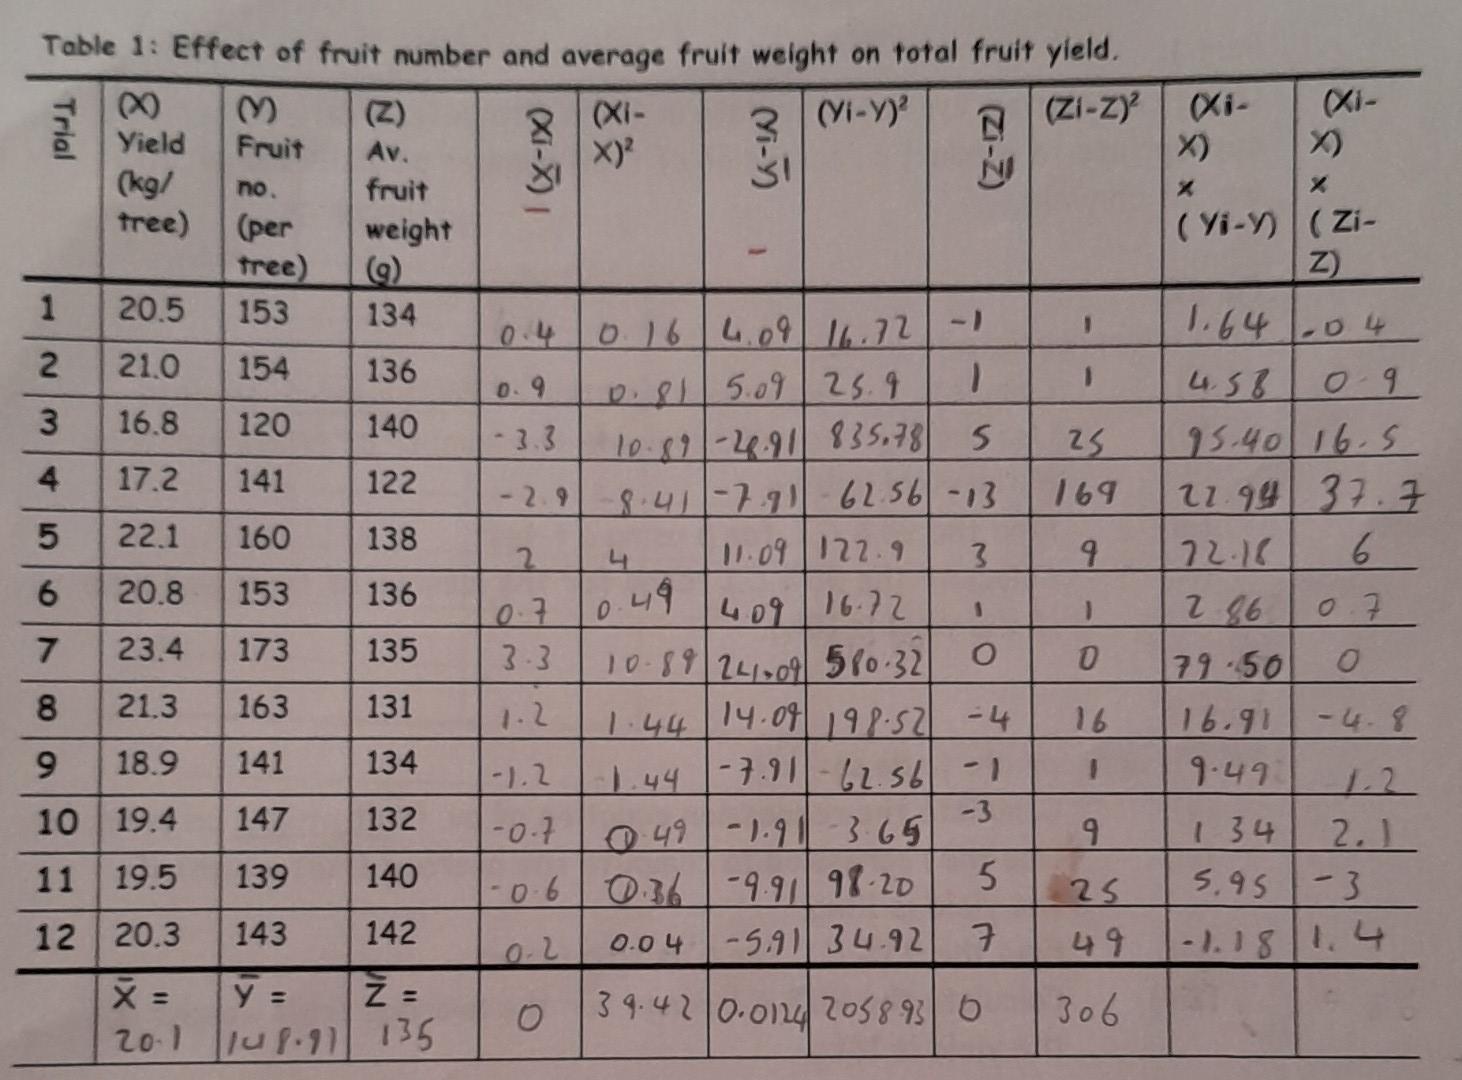 Table 1: Effect of fruit number and average fruit weight on total fruit yield.
Trial (X) Yield (kg/ tree) (Y) Fruit no. (per tree) (Z) Av. fruit weight (g) (Xi-X̄) (Xi-X)² (Yi-Ȳ) (Yi-Y)² (Zi-Z̄) (Zi-Z)² (Xi-X) x (Yi-Y) (Xi-X) x (Zi-Z)
1 20.5 153 134 0.4 0.16 4.09 16.72 -1 1 1.64 -0.4
2 21.0 154 136 0.9 0.81 5.09 25.9 1 1 4.58 0.9
3 16.8 120 140 -3.3 10.89 -28.91 835.78 5 25 95.40 16.5
4 17.2 141 122 -2.9 -8.41 -7.91 -62.56 -13 169 22.94 37.7
5 22.1 160 138 2 4 11.09 122.9 3 9 22.18 6
6 20.8 153 136 0.7 0.49 4.09 16.72 1 1 2.86 0.7
7 23.4 173 135 3.3 10.89 24.09 580.32 0 0 79.50 0
8 21.3 163 131 1.2 1.44 14.09 198.52 -4 16 16.91 -4.8
9 18.9 141 134 -1.2 -1.44 -7.91 -62.56 -1 1 9.49 1.2
10 19.4 147 132 -0.7 0.49 -1.91 -3.65 -3 9 1.34 2.1
11 19.5 139 140 -0.6 0.36 -9.91 98.20 5 25 5.95 -3
12 20.3 143 142 0.2 0.04 -5.91 34.92 7 49 -1.18 1.4
X̄ = 20.1 Ȳ = 148.91 Z̄ = 135 0 39.42 0.0124 2058.93 0 306